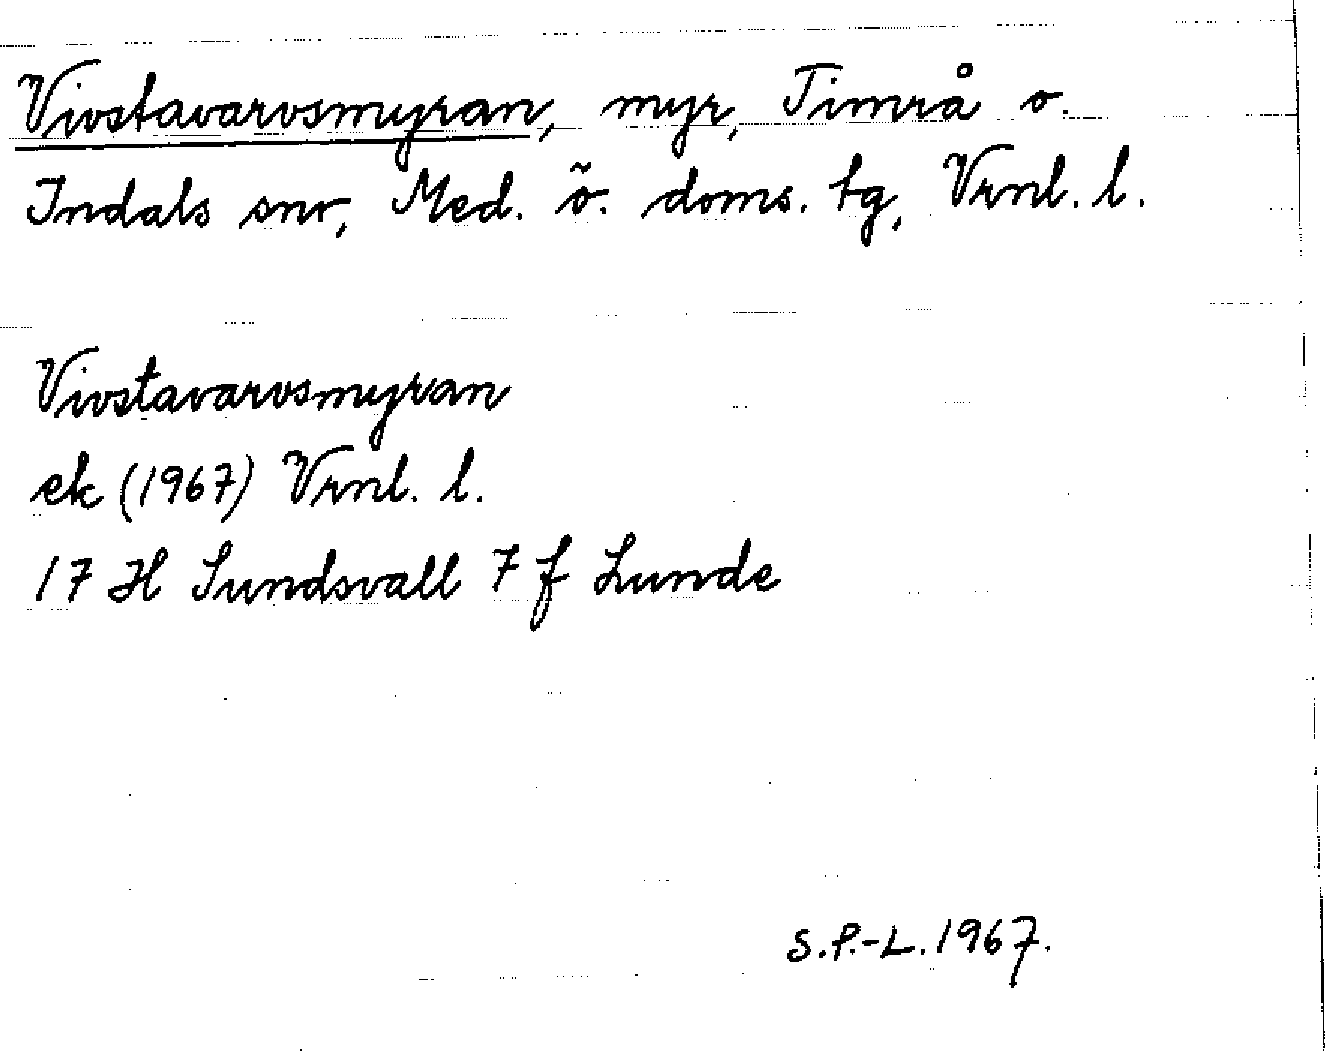 Vivstavarvsmyran, myr, Timrå o.
Indals snr, Med. ö. doms. tg, Vrnl. l.
Vivstavarvsmyran
ek (1967) Vrnl. l.
17 H Sundsvall 7 f Lunde
S.P.-L. 1967.